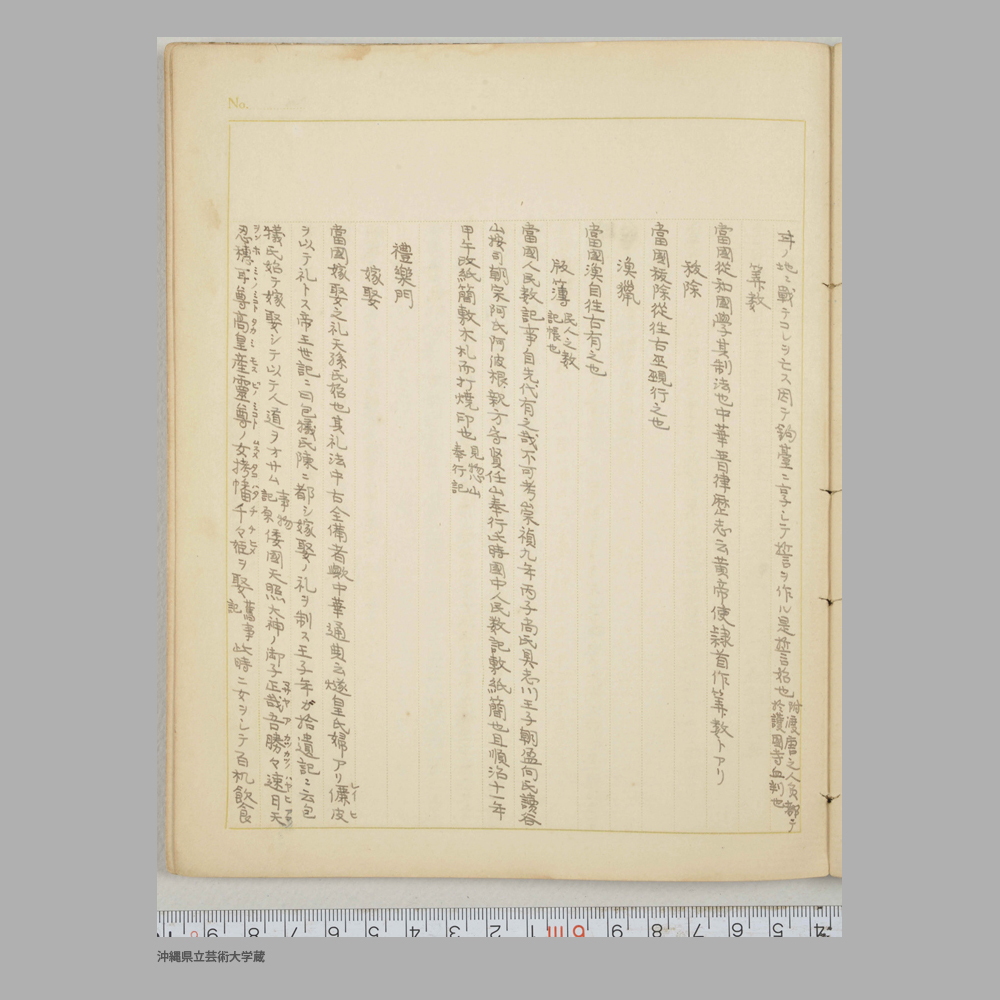 No.
丼ノ地ニ戰テコレヲ亡ス因テ鈞臺ニ享シテ誓ヲ作ル是誓言始也 附渡唐之人員都テ於讀國寺血判也
算数
當國從和國學其制法也中華晋律歴志云黄帝使隷首作算数トアリ
祓除
當國祓除從往古巫覡行之也
漁獵
當國漁自往古有之也
版簿 民人之数記帳也
當國人民数記事自先代有之哉不可考崇禎九年丙子尚氏具志川王子朝盈向氏讀谷
山按司朝宗阿氏阿波根親方守賢任山奉行此時國中人民数記敷紙簡也且順治十一年
甲午改紙簡敷木札而打焼印也 見惣山奉行記
禮樂門
嫁娶
當國嫁娶之礼天孫氏始也其礼法中古全備者歟中華通典云燧皇氏婦アリ儷皮
ヲ以テ礼トス帝王世記ニ曰包犠氏陳ニ都シ嫁娶ノ礼ヲ制ス王子年ガ拾遺記ニ云包
犠氏始テ嫁娶シテ以テ人道ヲオサム 事物記原 倭國天照大神ノ御子正哉吾勝々速日天
忍穗耳尊高皇産靈尊ノ女栲幡千々姫ヲ娶 舊事記 此時ニ女ヲシテ百机飲食
沖縄県立芸術大学蔵